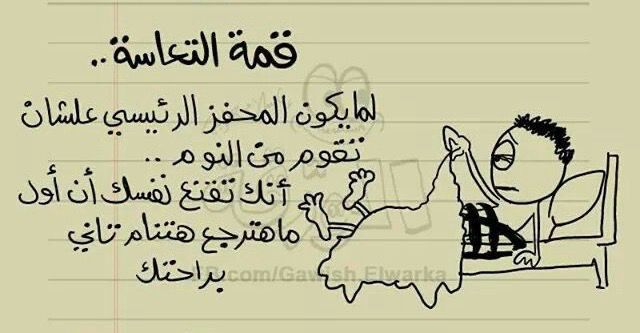 قمة التعاسة ..
لما يكون المحفز الرئيسي علشان
تقوم من النوم ..
أنك تقنع نفسك أن أول
ما هترجع هتنام تاني
براحتك
FB.com/Gawish.Elwarka